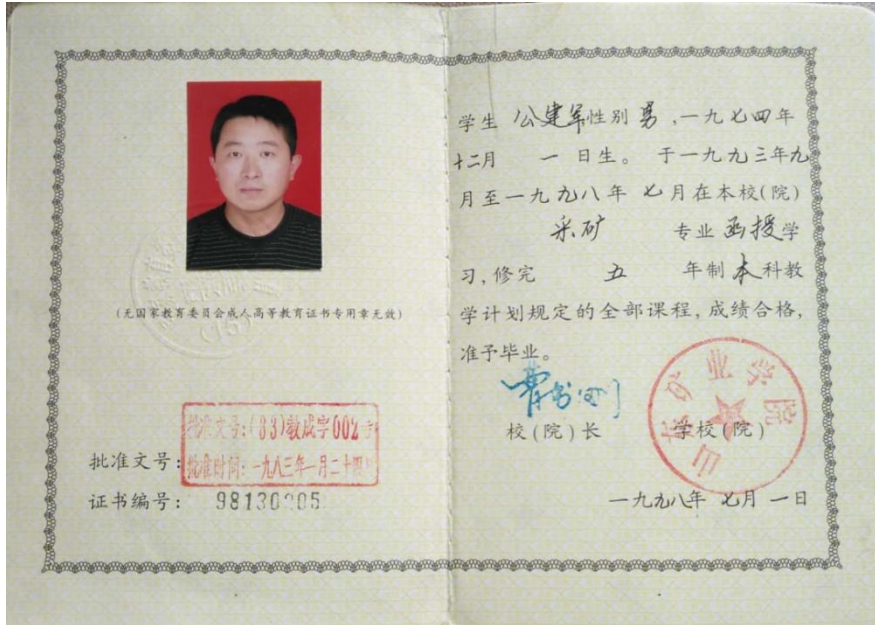 (无国家教育委员会成人高等教育证书专用章无效)
批准文号:(83)教成字002号
批准时间:一九八三年一月二十四日
批准文号:
证书编号: 98130205
学生 公建军性别 男 ,一九七四年
十二月 一 日生。 于一九九三年九
月至一九九八年 七月在本校(院)
采矿 专业 函授学
习,修完 五 年制 本科教
学计划规定的全部课程,成绩合格,
准予毕业。
校(院)长 学校(院)
山东矿业学院
一九九八年 七月 一日